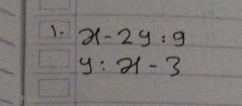 1. x - 2y : 9
y : x - 3